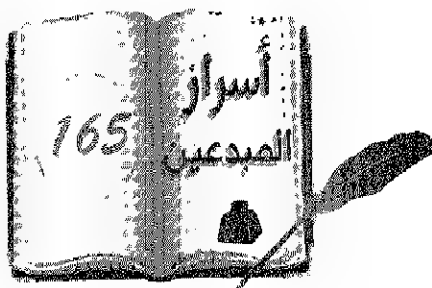 أسرار
المبدعين
165